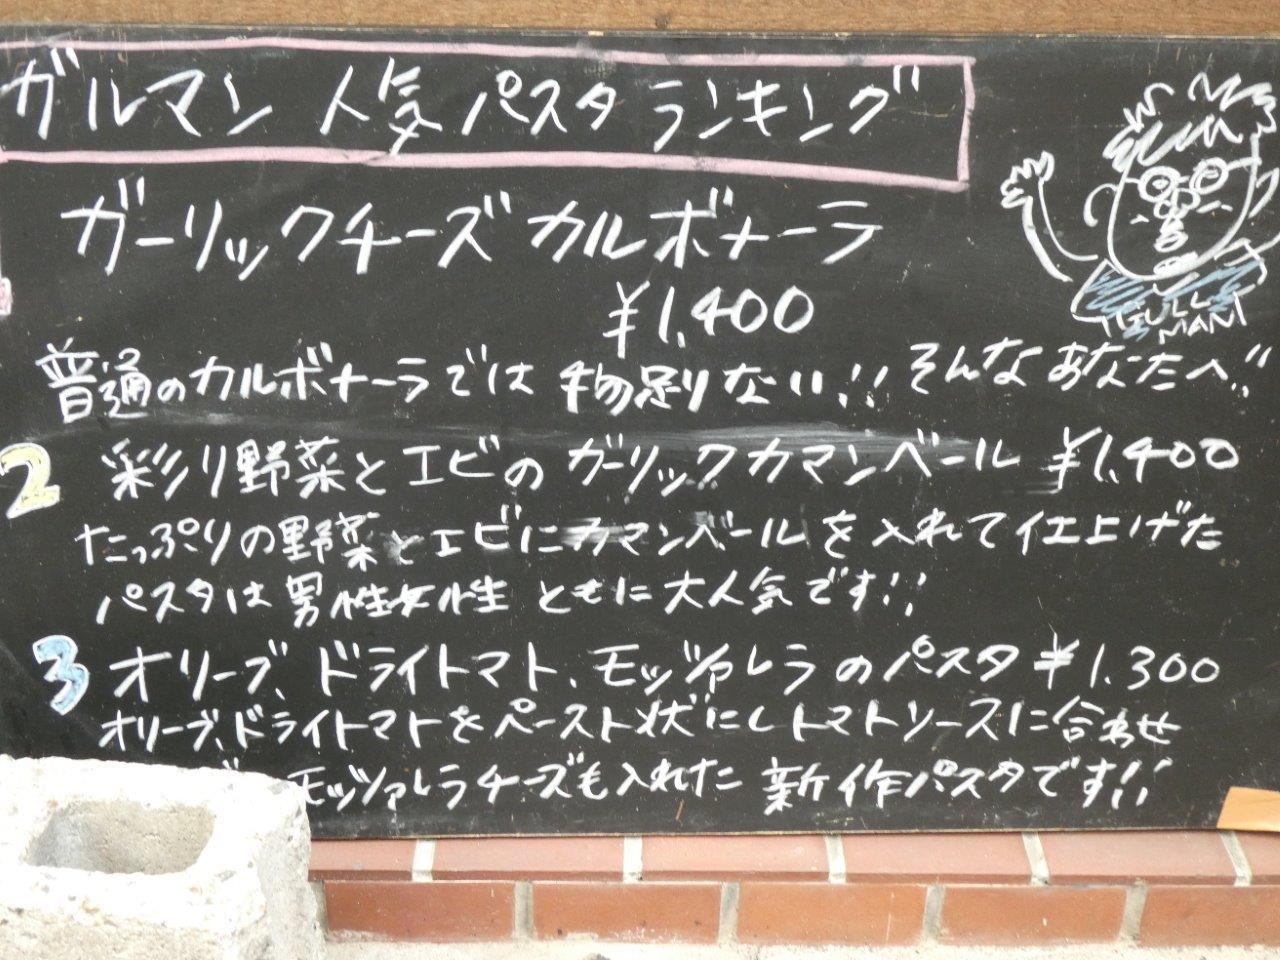 ガルマン 人気パスタランキング
ガーリックチーズカルボナーラ
¥1,400
FULL
MAN
普通のカルボナーラでは物足りない!! そんなあなたへ!!
2 彩り野菜とエビのガーリックカマンベール ¥1,400
たっぷりの野菜とエビにカマンベールを入れて仕上げた
パスタは男性女性ともに大人気です!!
3 オリーブ、ドライトマト、モッツァレラのパスタ ¥1,300
オリーブ、ドライトマトをペースト状にしトマトソースに合わせ
モッツァレラチーズも入れた 新作パスタです!!